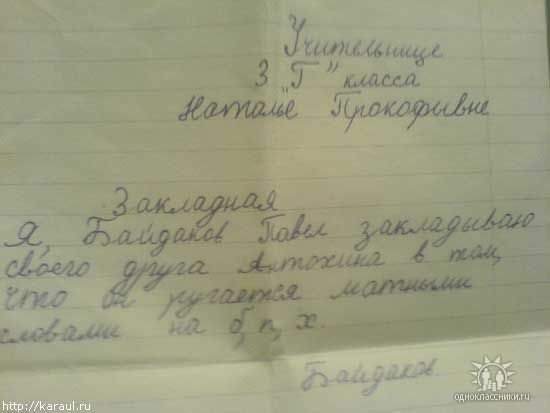 Учительнице
3 "Г" класса
Наталье Прокофивне
Закладная
Я, Байдаков Павел закладываю
своего друга Антохина в том,
что он ругается матными
словами на б, п, х.
Байдаков.
http://karaul.ru
одноклассники.ru